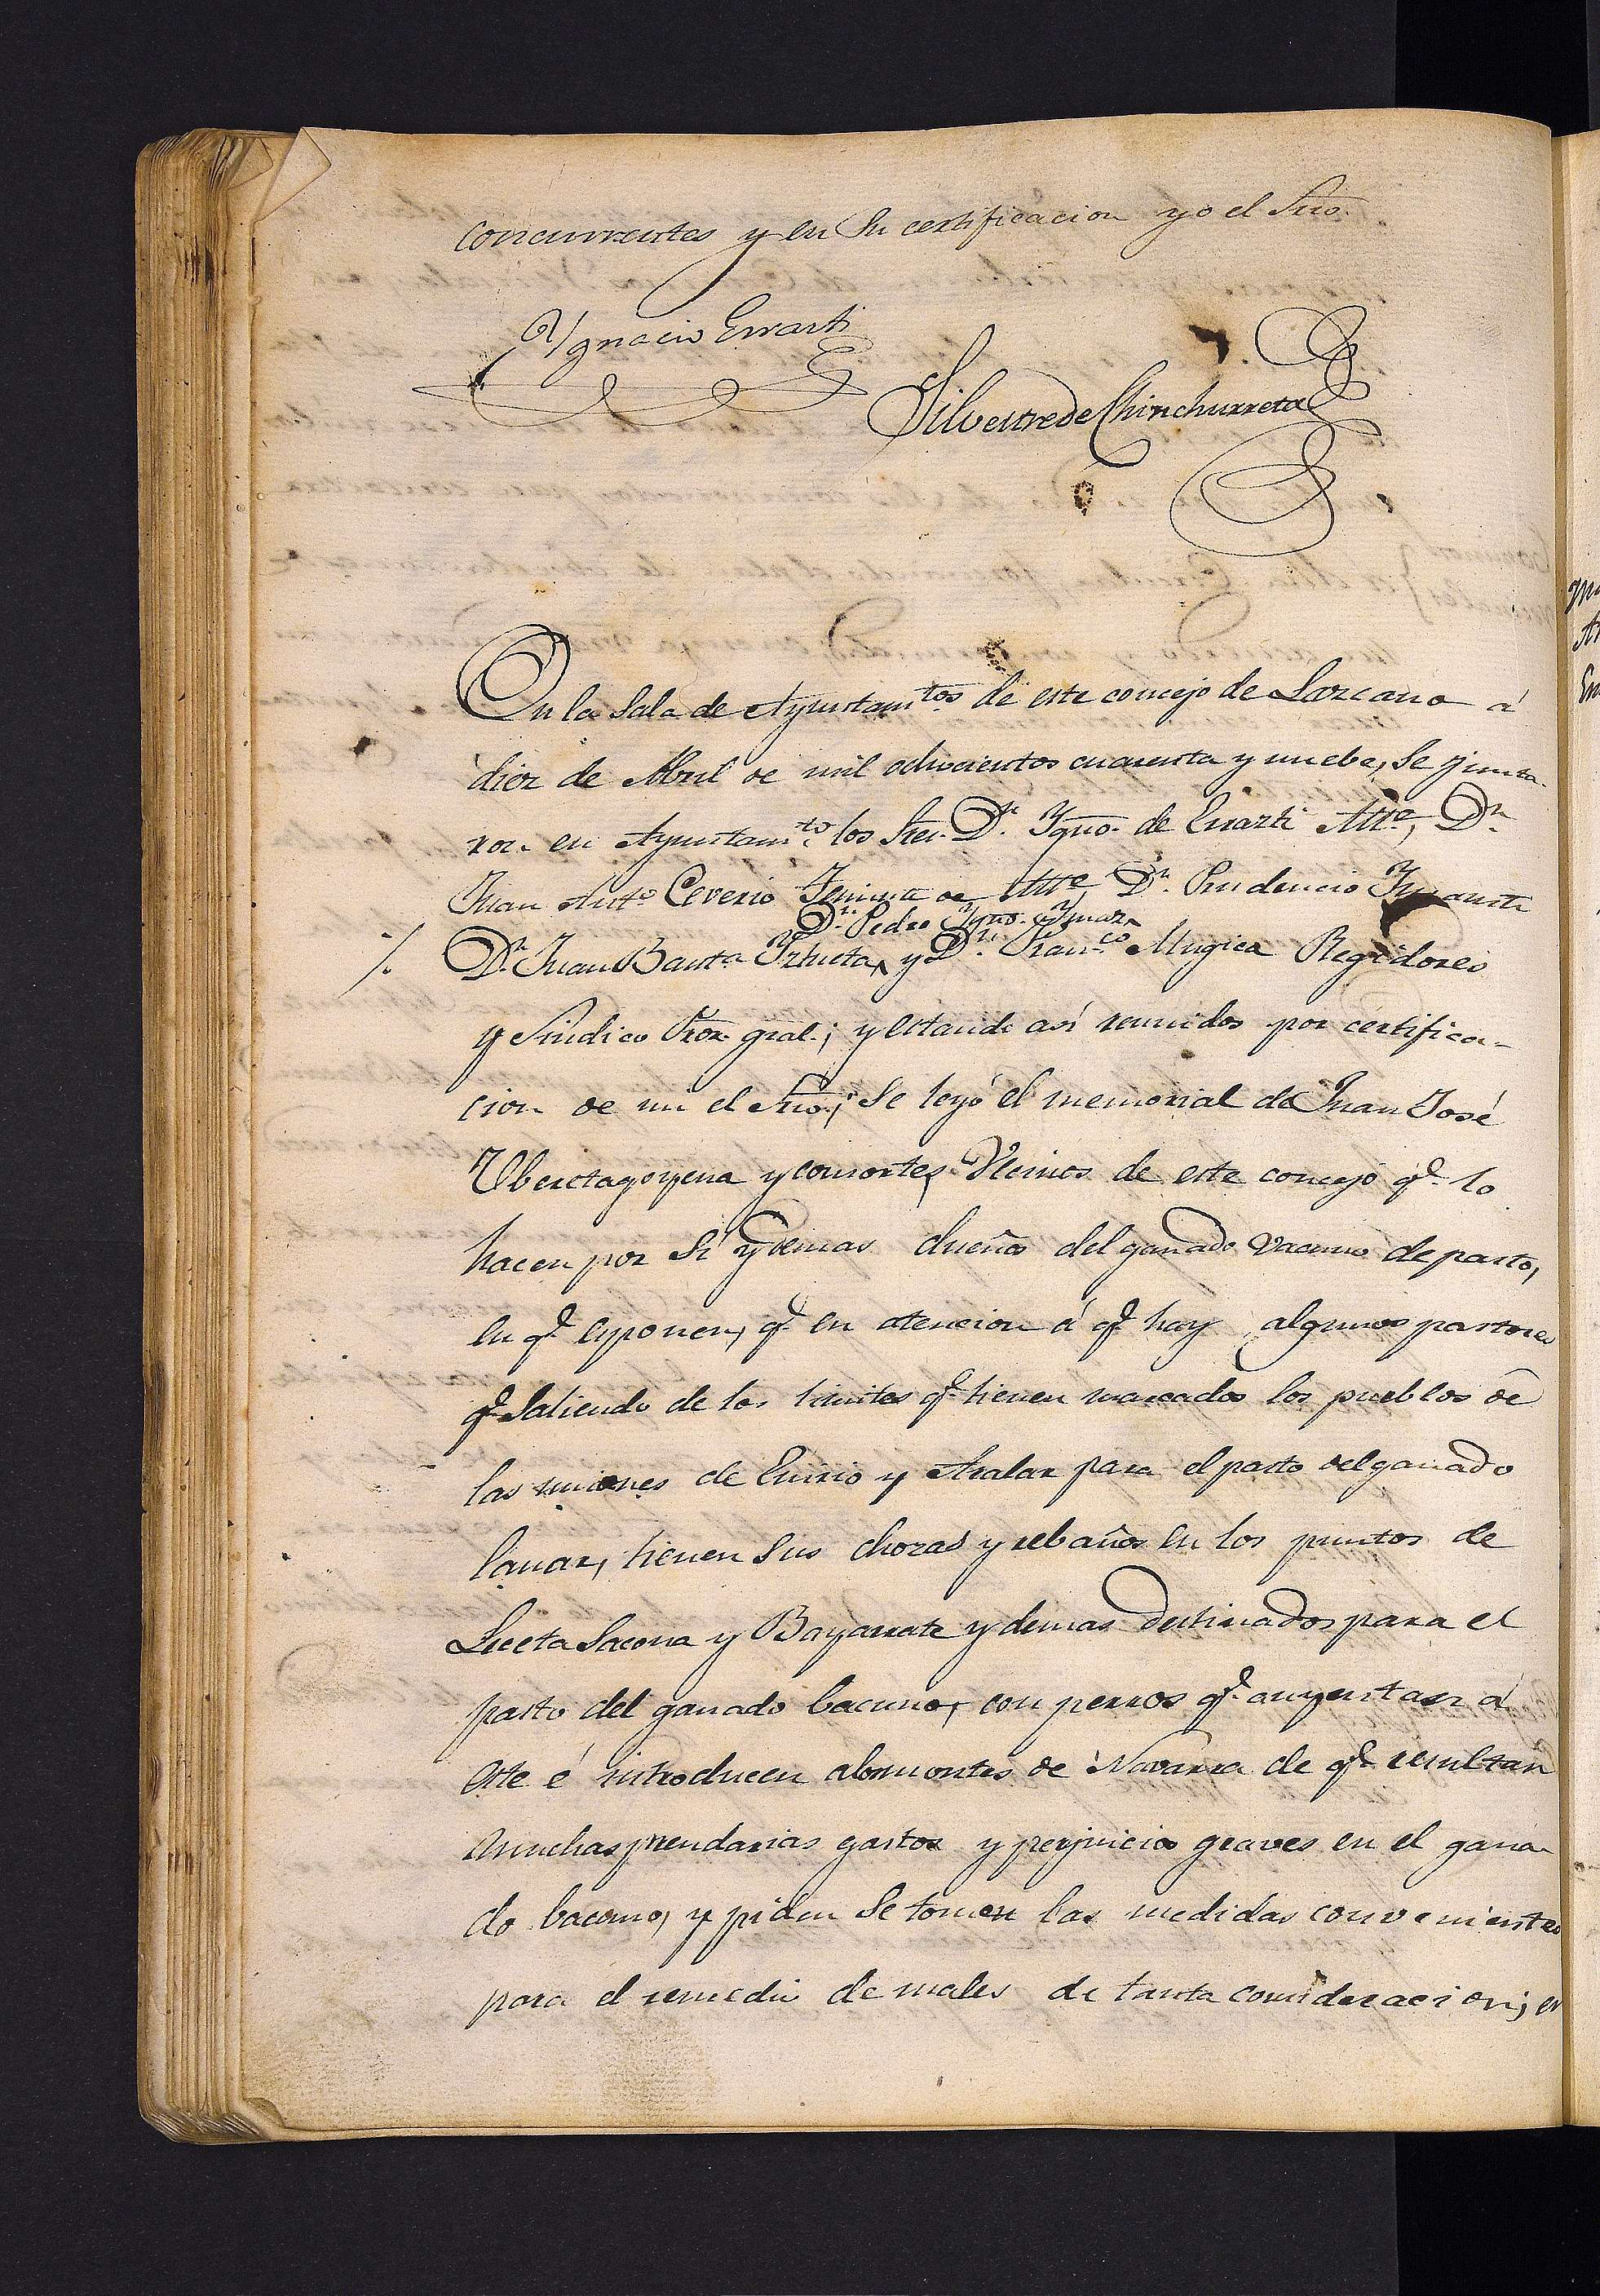 concurrentes y en Su certificacion yo el Srio.
Ygnacio Errarti
Silvestre de Chinchurreta
En la Sala de Ayuntamtos de este concejo de Lazcano á
diez de Abril de mil ochocientos cuarenta y nuebe, Se junta-
ron en Ayuntamto. los Sres. Dn. Ygno. de Errarti Alle, Dn.
Juan Anto Ceverio Teniente de Alle, Dn. Prudencio
Dn. Pedro Ygno. Ymaz
Dn. Juan Bauta Iztueta y Dn. Franco Mugica Regidores
y Sindico Pror. gral.; y estando así reunidos por certifica-
cion de mi el Srio., Se leyó el memorial de Juan José
Uberetagoyena y consortes Vecinos de este concejo qe. lo
hacen por Sí y demas dueños del ganado vacuno de pasto,
en qe. esponen, qe. en atencion á qe. hay algunos pastores
qe. Saliendo de los limites qe. tienen marcados los pueblos de
las uniones de Enirio y Aralar para el pasto del ganado
lanar, tienen Sus chozas y rebaños en los puntos de
y Bayarrate y demas destinados para el
pasto del ganado bacuno, con perros qe. auyentan á
Este é introducen alosmontes de Navarra de qe. resultan
muchas prendarias gastos y perjuicios graves en el gana-
do bacuno, y piden Se tomen las medidas convenientes
para el remedio de males de tanta consideracion; en